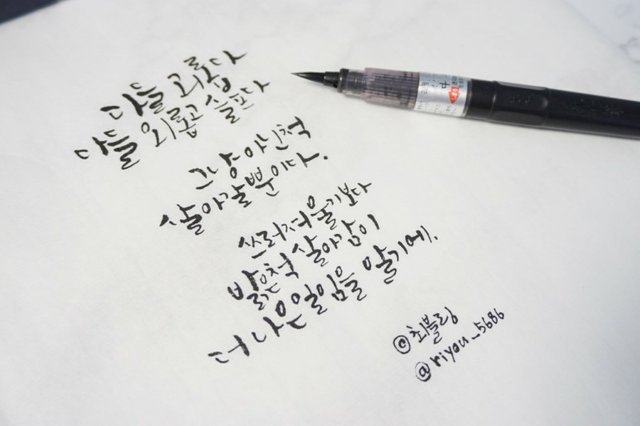 다들 괴롭다
다들 외롭고 슬프다
그냥 아닌척
살아갈뿐이다.
쓰러져 울기보다
밝은척 살아감이
더 나은 일임을 알기에.
©최블링
@riyou_5686